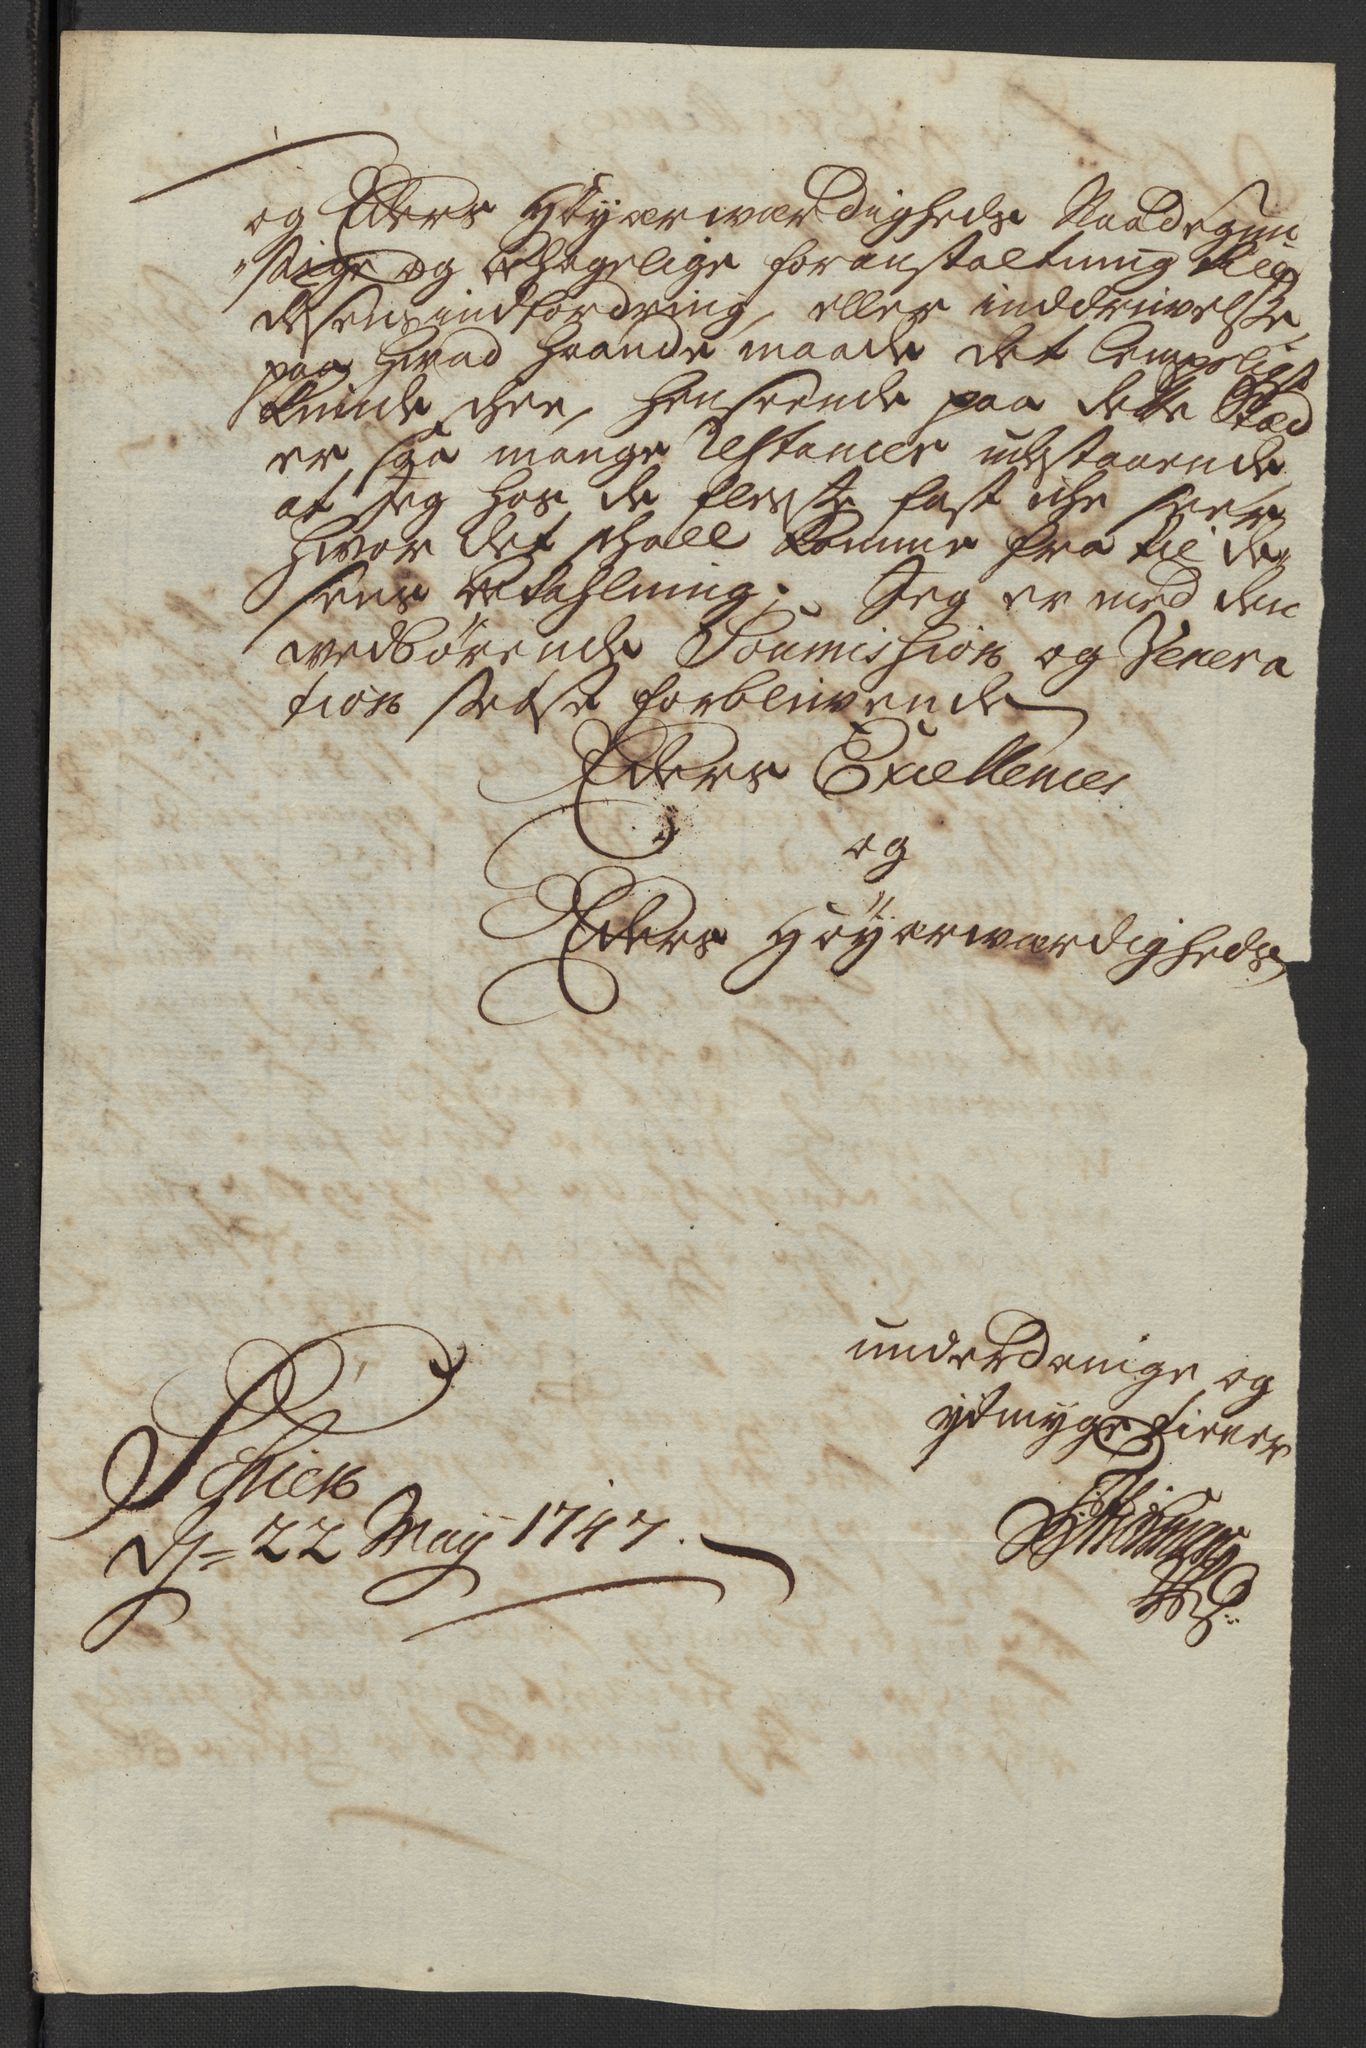 og Eders Höyærværdigheds Naadegun-
stige og behagelige foranstaltning till
dessens indfordring, eller inddrivelse,
paa hvad haande maade det lempeligst
kunde schee, henseende paa dette Stæd
er saa mange restancer udestaaende
at jeg hos de fleeste fast iche seer
hvor det schall komme fra til de-
sens betahlning. Jeg er med den
vedbörende Soumission og Venera
tion stetse forblivende
Eders Excellences
og
Eders Höyærværdigheds
underdanige og
ydmyge tiener
Schien
d= 22 Maij 1747.